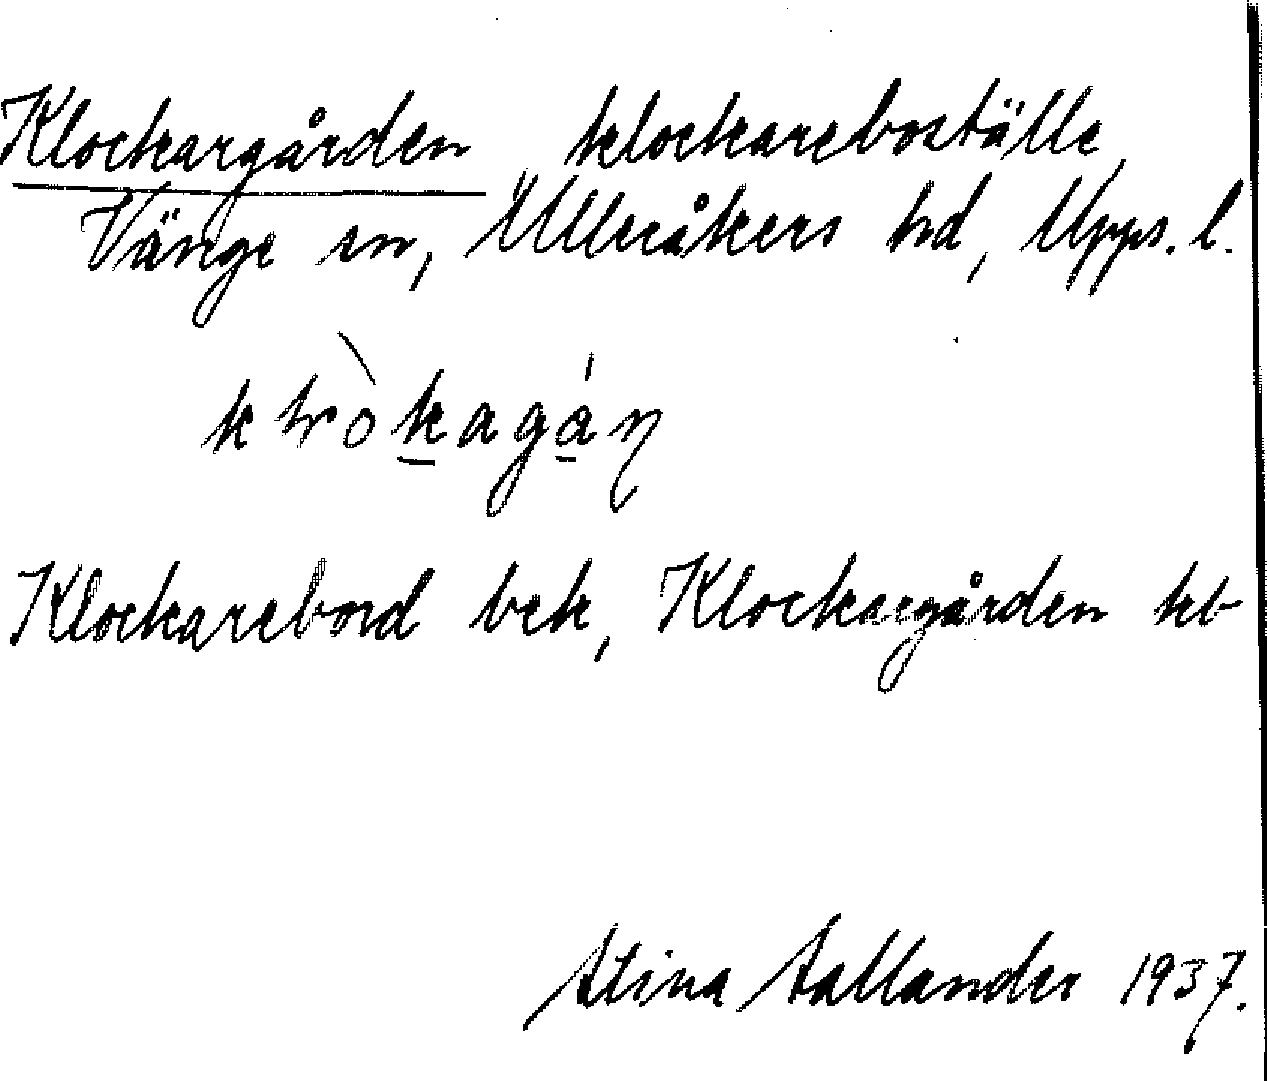 Klockargården, klockareboställe,
Vänge sn, Ulleråkers hd, Upps. l.
Klockarebord bek, Klockargården kb
Stina 1937.